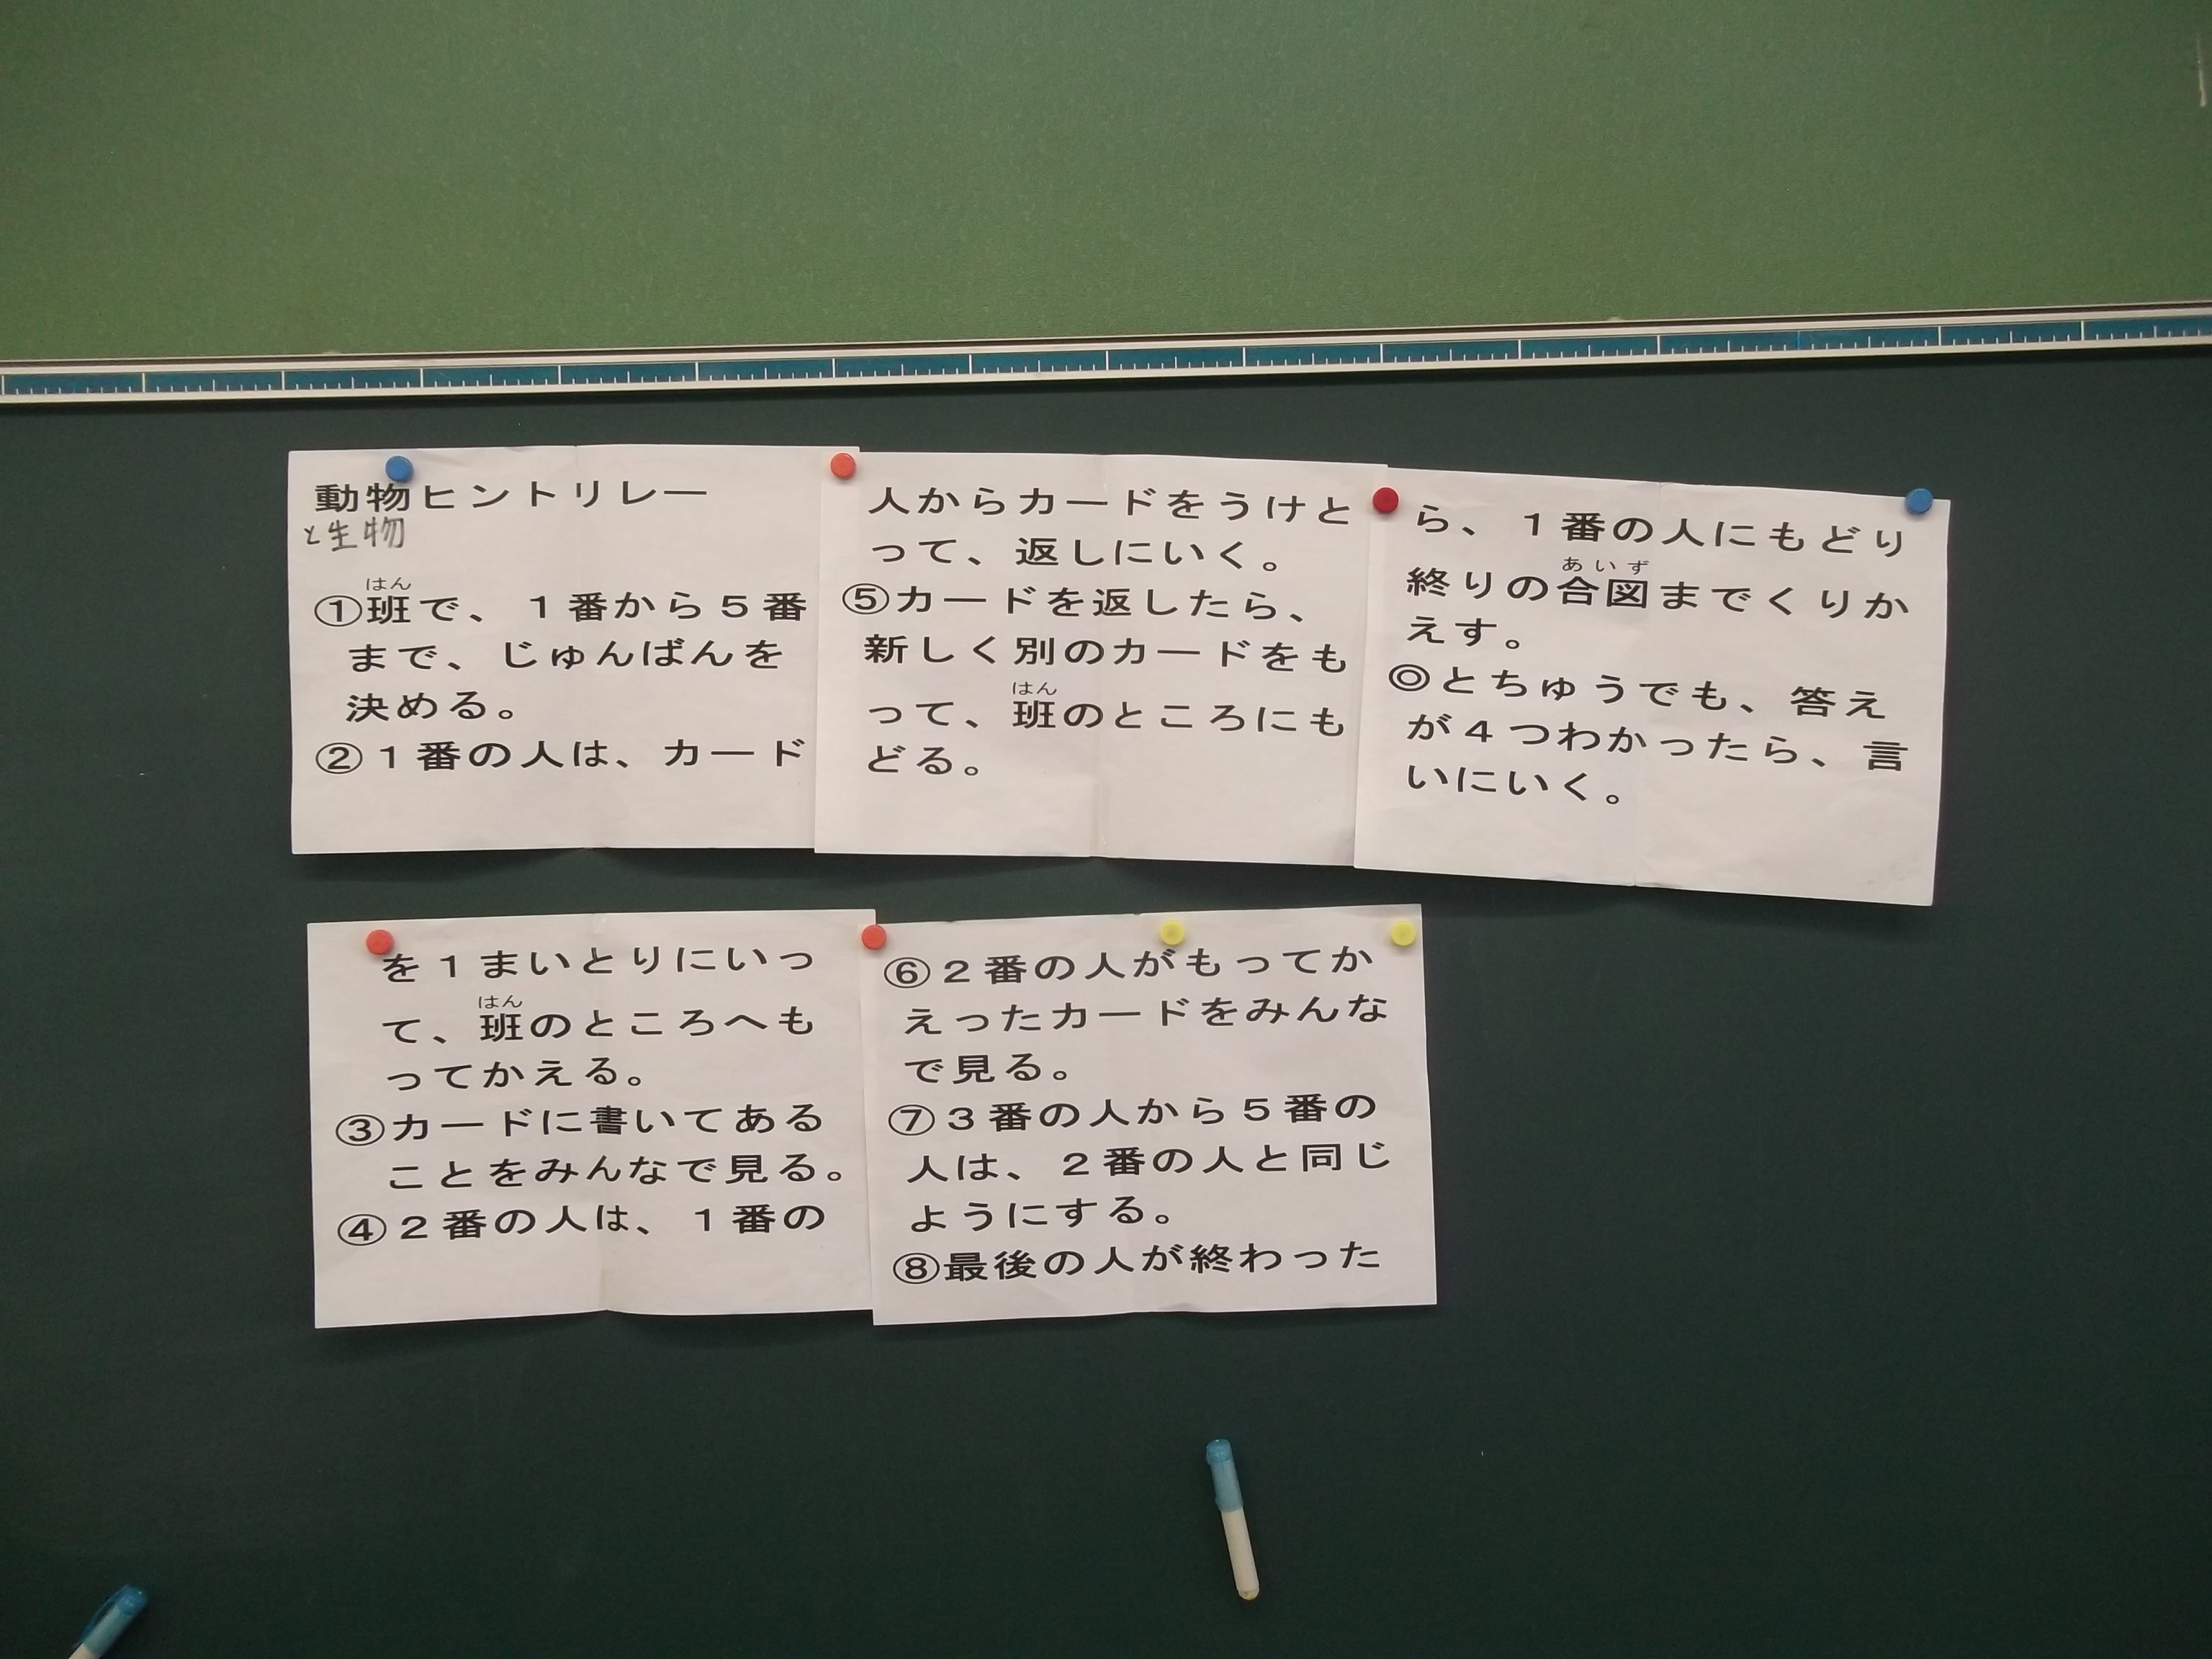 動物ヒントリレー
と生物
はん
①班で、１番から５番
まで、じゅんばんを
決める。
②１番の人は、カード
を１まいとりにいっ
はん
て、班のところへも
ってかえる。
③カードに書いてある
ことをみんなで見る。
④２番の人は、１番の
人からカードをうけと
って、返しにいく。
⑤カードを返したら、
新しく別のカードをも
はん
って、班のところにも
どる。
⑥２番の人がもってか
えったカードをみんな
で見る。
⑦３番の人から５番の
人は、２番の人と同じ
ようにする。
⑧最後の人が終わった
ら、１番の人にもどり
あいず
終りの合図までくりか
えす。
◎とちゅうでも、答え
が４つわかったら、言
いにいく。